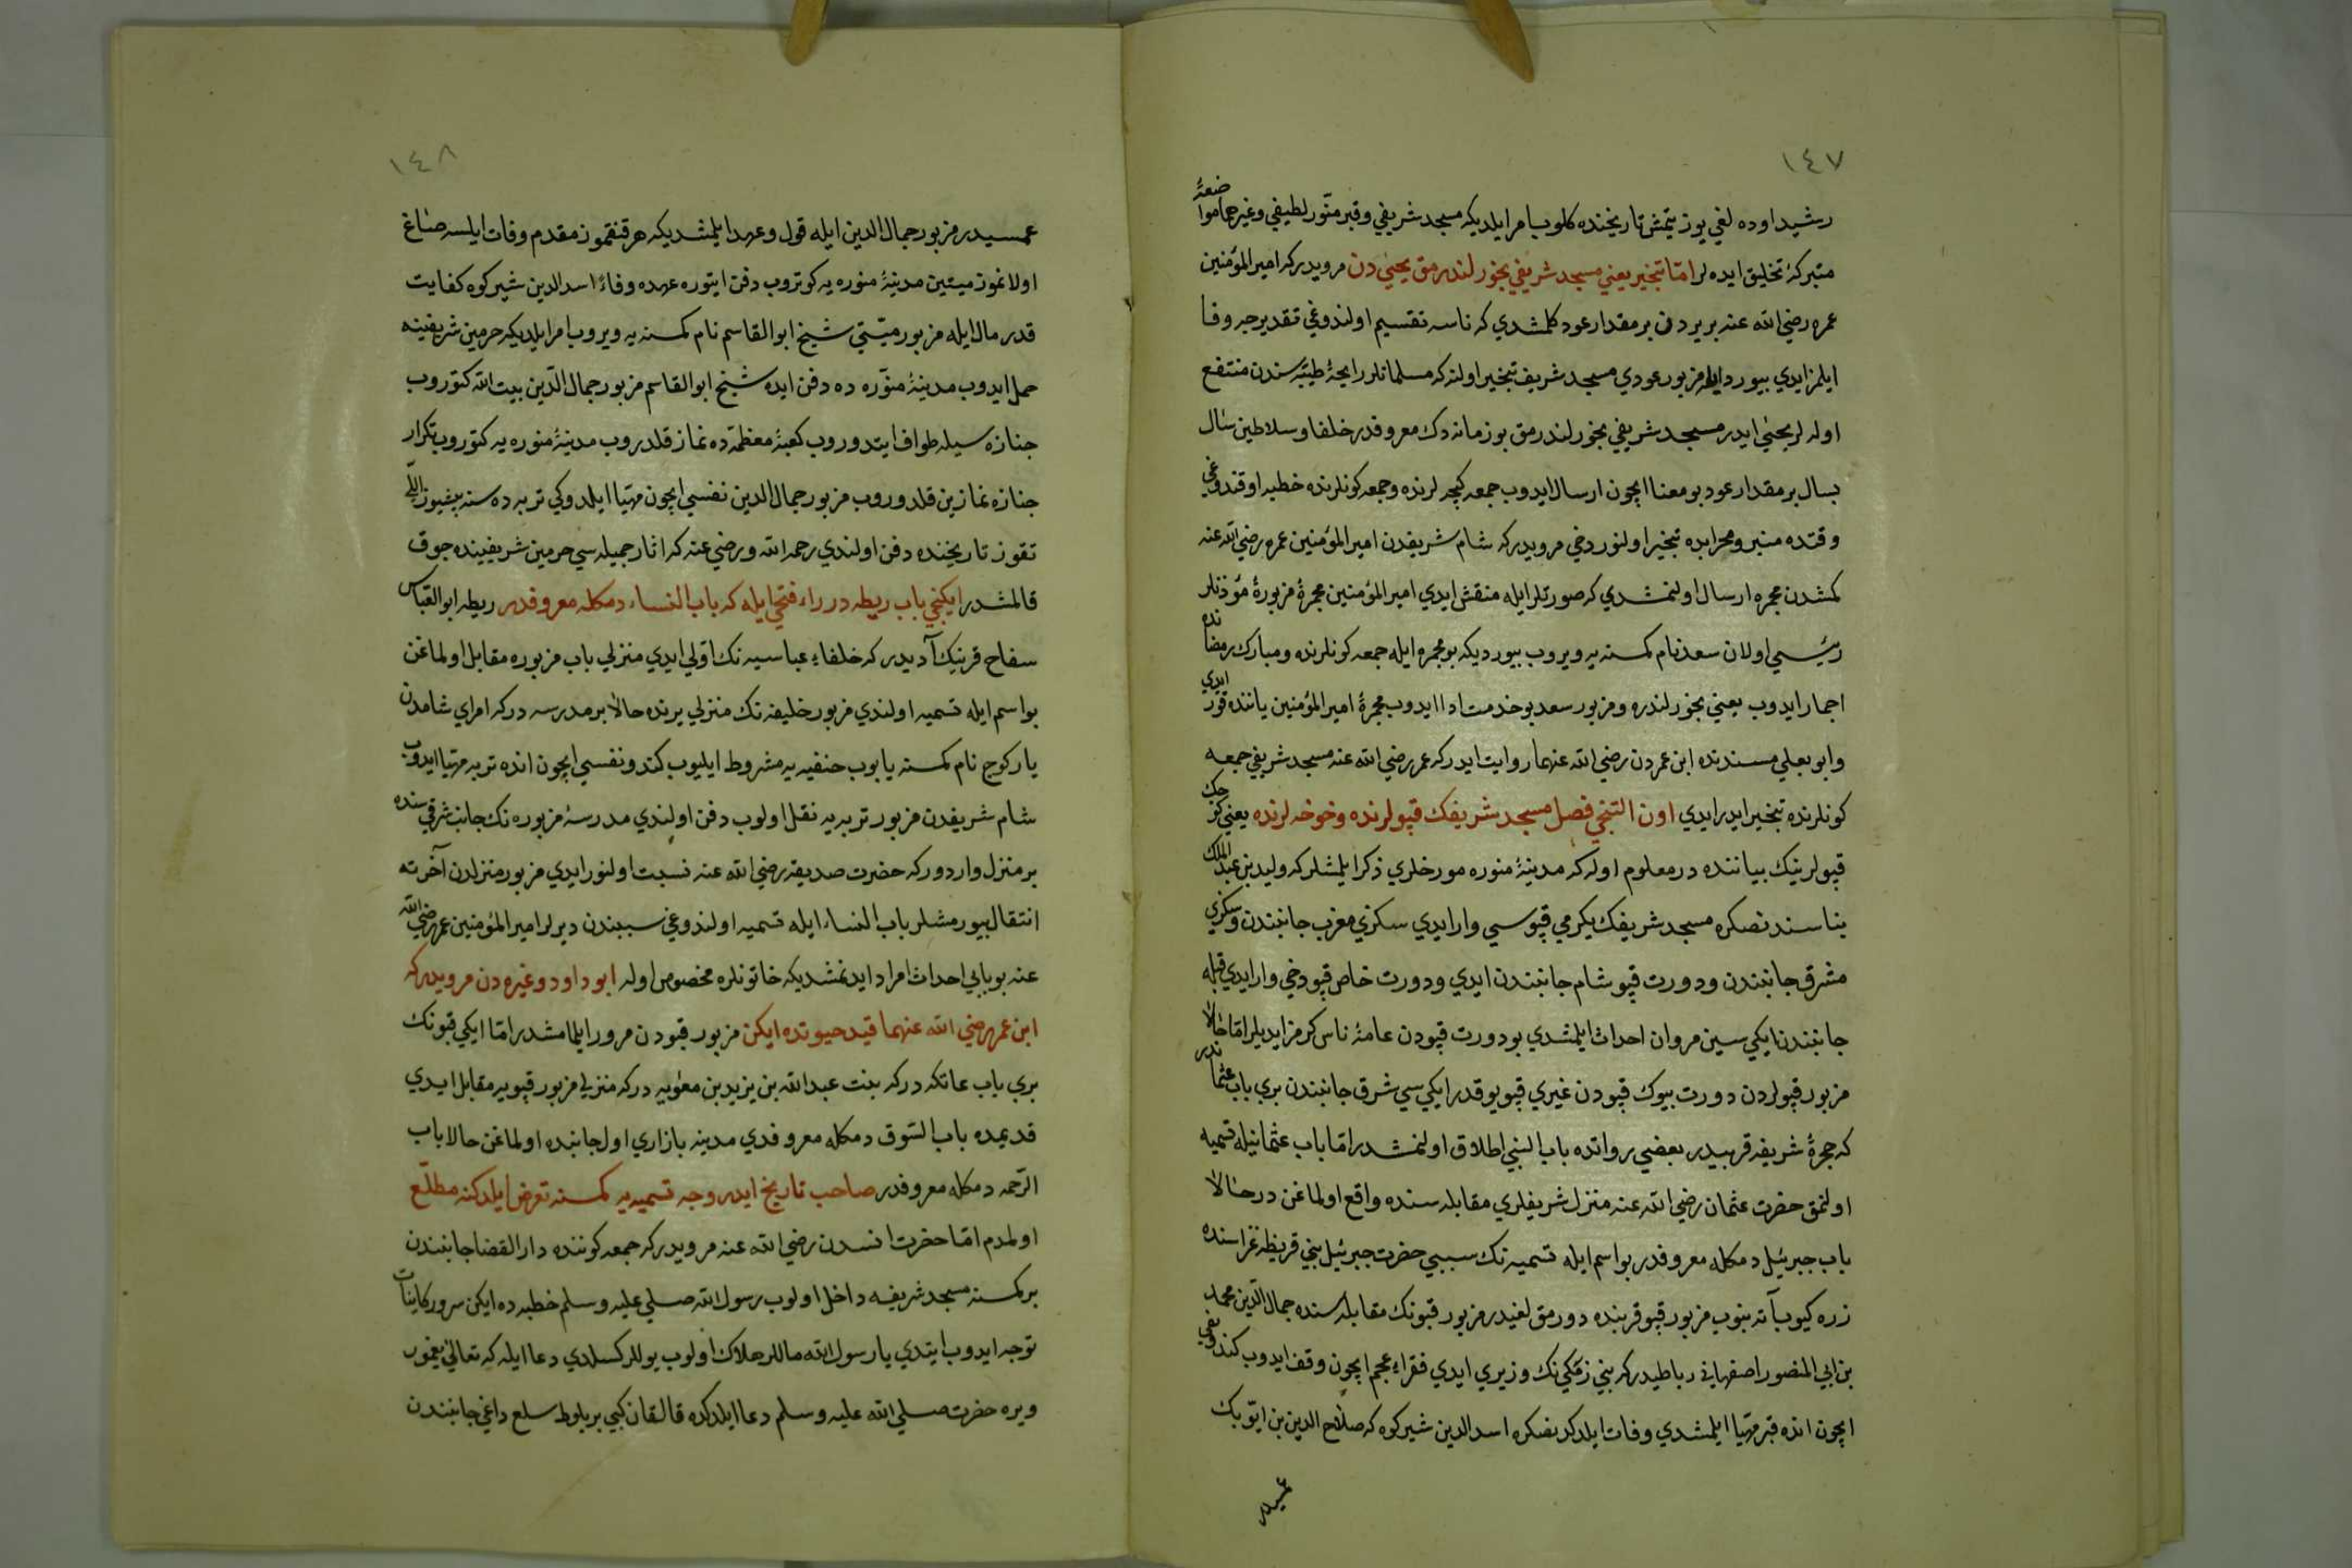 ١٤٧
رشید اوده لغي یوز یتمش تاریخنده كلوب امر ایلدیكه مسجد شریفي و قبر منور لطیفي و غیرهما مواضعهٔ
متبركهٔ تخلیق ایده لر امّا تبخیر یعني مسجد شریفي بخورلندرمق یحیي دن مرویدركه امیر المؤمنین
عمره رضي الله عنه بر یردن بر مقدار عود كلمشدي كه ناسه تقسیم اولندوغي تقدیرجه وفا
ایلمز ایدي بیوردیلر مزبور عودي مسجد شریف تبخیر اولنه كه مسلمانلر رایحهٔ طیبه سندن منتفع
اوله لر یحیي ایدر مسجد شریفي بخورلندرمق بو زمانه دك معروفدر خلفا و سلاطین سال
بسال بر مقدار عود بو معنا ایچون ارسال ایدوب جمعه كیجه لرنده و جمعه كونلرنده خطبه اوقندوغي
وقتده منبر و محرابده تبخیر اولنور دخي مرویدركه شام شریفدن امیر المؤمنین عمره رضي الله عنه
كمشدن مجمره ارسال اولنمشدي كه صورتلر ایله منقش ایدي امیر المؤمنین مجمرهٔ مزبورهٔ مؤذنلر
رئیسي اولان سعد نام كمسنه یه ویروب بیوردیكه بو مجمره ایله جمعه كونلرنده و مبارك رمضانده
اجمار ایدوب یعني بخورلندره و مزبور سعد بو خدمت ادا ایدوب مجمرهٔ امیر المؤمنین یاننده قور ایدي
و ابو یعلي مسندنده ابن عمردن رضي الله عنهما روایت ایدركه عمر رضي الله عنه مسجد شریفي جمعه
كونلرنده تبخیر ایدر ایدي اون التنجي فصل مسجد شریفك قپولرنده و خوخه لرنده یعني كوجك
قپولرینك بیاننده در معلوم اوله كه مدینهٔ منوره مورخلري ذكر ایلمشلر كه ولید بن عبد الملك
بناسندنصكره مسجد شریفك یكرمي قپوسي وار ایدي سكزي مغرب جانبندن و سكزي
مشرق جانبندن و دورت قپو شام جانبندن ایدي و دورت خاص قپو دخي وار ایدي قبله
جانبندن ایكي سین مروان احداث ایلمشدي بو دورت قپودن عامهٔ ناس كرمز ایدیلر امّا حالا
مزبور قپولردن دورت بیوك قپودن غیري قپو یوقدر ایكي سي شرق جانبندن بري باب عثماندر
كه حجرهٔ شریفه قربیدر بعضي رواتده باب النبي اطلاق اولنمشدر امّا باب عثمانیله تسمیه
اولنمق حضرت عثمان رضي الله عنه منزل شریفلري مقابله سنده واقع اولماغن در حالا
باب جبرئیل دمكله معروفدر بو اسم ایله تسمیه نك سببي حضرت جبرئیل بني قریظه غزاسنده
زره كیوب آته بنوب مزبور قپو قربنده دورمق لغیدر مزبور قپونك مقابله سنده جمال الدّین محمد
بن ابي المنصور اصفهاني رباطیدركه بني زنكي نك وزیري ایدي فقراء عجم ایچون وقف ایدوب كندو نفسي
ایچون انده قبر مهیّا ایلمشدي وفات ایلدكدنصكره اسد الدین شیركوه كه صلاح الدین بن ایوبك
عمسیدر
١٤٨
عمسیدر مزبور جمال الدین ایله قول و عهد ایلمشدیكه هر قنقمز مقدم وفات ایلسه صاغ
اولانمز میتین مدینهٔ منوره یه كوتروب دفن ایتوره عهده وفاءً اسد الدین شیركوه كفایت
قدر مال ایله مزبور میتي شیخ ابو القاسم نام كمسنه یه ویروب امر ایلدیكه حرمین شریفینه
حمل ایدوب مدینهٔ منوّره ده دفن ایده شیخ ابو القاسم مزبور جمال الدّین بیت الله كتوروب
جنازه سیله طواف ایتدوروب كعبهٔ معظمه ده نماز قلدروب مدینهٔ منوره یه كتوروب تكرار
جنازه نمازین قلدوروب مزبور جمال الدین نفسي ایچون مهیّا ایلدوكي تربه ده سنه بیشیوز اللي
تقوز تاریخنده دفن اولندي رحمه الله و رضي عنه كه اثار جمیله سي حرمین شریفینده جوق
قالمشدر ایكنجي باب ریطه در راء فتحي ایله كه باب النساء دمكله معروفدر ریطه ابو العباس
سفاح قرینك آدیدر كه خلفاء عباسیه نك اوّلي ایدي منزلي باب مزبوره مقابل اولماغن
بو اسم ایله تسمیه اولندي مزبور خلیفه نك منزلي یرنده حالا بر مدرسه دركه امراي شامدن
یاركوج نام كمسنه یابوب حنفیه یه مشروط ایلیوب كندو نفسي ایچون انده تربه مهیّا ایدوب
شام شریفدن مزبور تربه یه نقل اولوب دفن اولندي مدرسهٔ مزبوره نك جانب شرقي سنده
بر منزل واردوركه حضرت صدیقه رضي الله عنه نسبت اولنور ایدي مزبور منزلدن آخرته
انتقال بیورمشلر باب النساء ایله تسمیه اولندوغي سببندن دیرلر امیر المؤمنین عمر رضي الله
عنه بو بابي احداث امراد ایدنمشدیكه خاتونلره مخصوص اوله ابو داود و غیره دن مرویدركه
ابن عمر رضي الله عنهما قید حیوتده ایكن مزبور قپودن مرور ایلمامشدر امّا ایكي قپونك
بري باب عاتكه دركه بنت عبد الله بن یزید بن معویه دركه منزلي مزبور قپویه مقابل ایدي
قدیمده باب السّوق دمكله معروفدي مدینه بازاري اول جانبده اولماغن حالا باب
الرّحمه دمكله معروفدر صاحب تاریخ ایدر وجه تسمیه یه كمسنه تعرض ایلدكنه مطلّع
اولمدم امّا حضرت انسدن رضي الله عنه مرویدركه جمعه كوننده دار القضا جانبندن
بر كمسنه مسجد شریفه داخل اولوب رسول الله صلي علیه وسلم خطبه ده ایكن سرور كایناته
توجه ایدوب ایتدي یا رسول الله ماللر هلاك اولوب یوللر كسلدي دعا ایله كه تعالي یغمور
ویره حضرت صلي الله علیه وسلم دعا ایلدكده قالقان كبي بر بلوط سلع داغي جانبندن